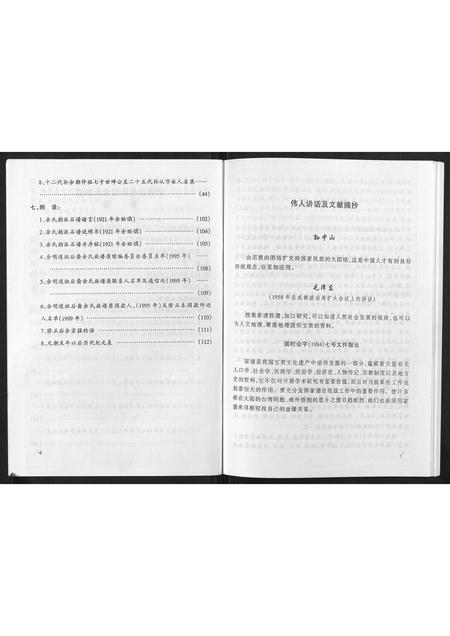 8.十二代孙余朝仲祖七子世坤公至二十五代孙从字派人名表……
(44)
七、附 录:
1.余氏韵派石谱谱言(1921年余贻偶) (102)
2.余氏韵派石谱说明书(1921年余贻偶) (104)
3.余氏韵派石谱并丹铭(1921年余贻偶) (104)
4.余明道祖后裔余氏族谱原续编委员会委员名单(1995年)
(108)
5.余明道祖后裔余氏族谱原联系人名单及通信处(1995年)
(109)
6.余明道祖后裔余氏族谱原捐款人,(1995年)及修正本捐款印送
人名单(1999年) (110)
7.修正后余富猛的话 (111)
8.元朝末年以后历代纪元表 (112)
6
伟人讲话及文献摘抄
孙中山
由宗族的团结扩充到国家民族的大团结,这是中国人才有的良好
传统观念,应妥加应用。
毛泽东
(1958年在成都政治局扩大会议上的讲话)
搜集家谱族谱,加以研究,可以知道人类社会发展的规律,也可以
为人文地理,聚落地理提供宝贵的资料。
国档会字(1984)七号文件指出
家谱是我国宝贵文化遗产中亟待发掘的一部分,蕴藏着大量有关
人口学、社会学、民族学、民俗学、经济史、人物传记、宗教制度以及地方
史的资料,它不仅对开展学术研究有重要价值,而且对当前某些工作也
起着很大的作用。要充分发挥家谱在统战工作中的重要作用。使许多
根在大陆的台湾同胞、海外侨胞的思乡之情日趋浓烈,他们也亟须用家
谱来寻根究找自己的血缘关系。